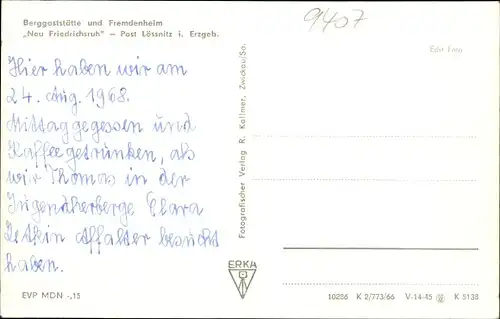 Berggaststätte und Fremdenheim
„Neu Friedrichsruh" – Post Lössnitz i. Erzgeb.
9407
Edit Foto
Hier haben wir am
24. Aug. 1968.
Mittaggegessen und
Kaffeegetrunken, als
wir Thomas in der
Jugendherberge Clara
Zetkin Affalter besucht
haben.
Fotografischer Verlag R. Kallmer, Zwickau/Sa.
ERKA
EVP MDN -,15
10286 K 2/773/66 V-14-45 K 5138